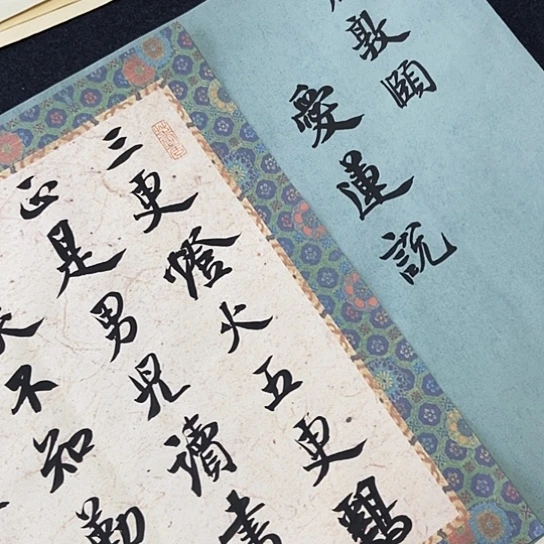 敦頤
愛蓮説
三更燈火五更鷄
正是男兒讀書
不知勤